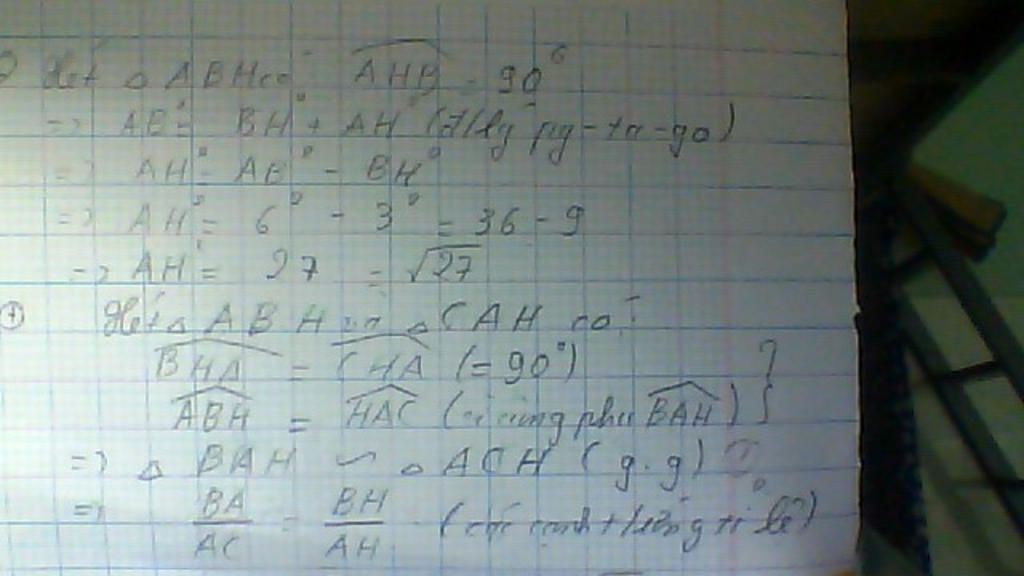 Xét △ ABH có AHB = 90°
=> AB² = BH² + AH² (Đ/lý py-ta-go)
=> AH² = AB² - BH²
=> AH² = 6² - 3² = 36 - 9
=> AH = 27 = √27
+ Xét △ ABH và △ CAH có:
BHA = CHA (= 90°) }
ABH = HAC (vì cùng phụ BAH) }
=> △ BAH ∽ △ ACH (g.g)
=> BA/AC = BH/AH (các cạnh tương tỉ lệ)